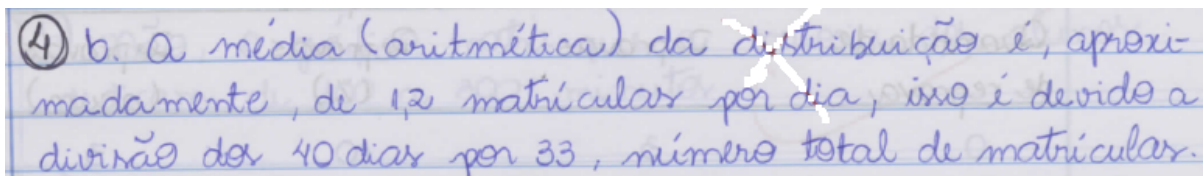 ④ b. A média (aritmética) da distribuição é, aproxi-
madamente, de 1,2 matrículas por dia, isso é devido a
divisão dos 40 dias por 33, número total de matrículas.